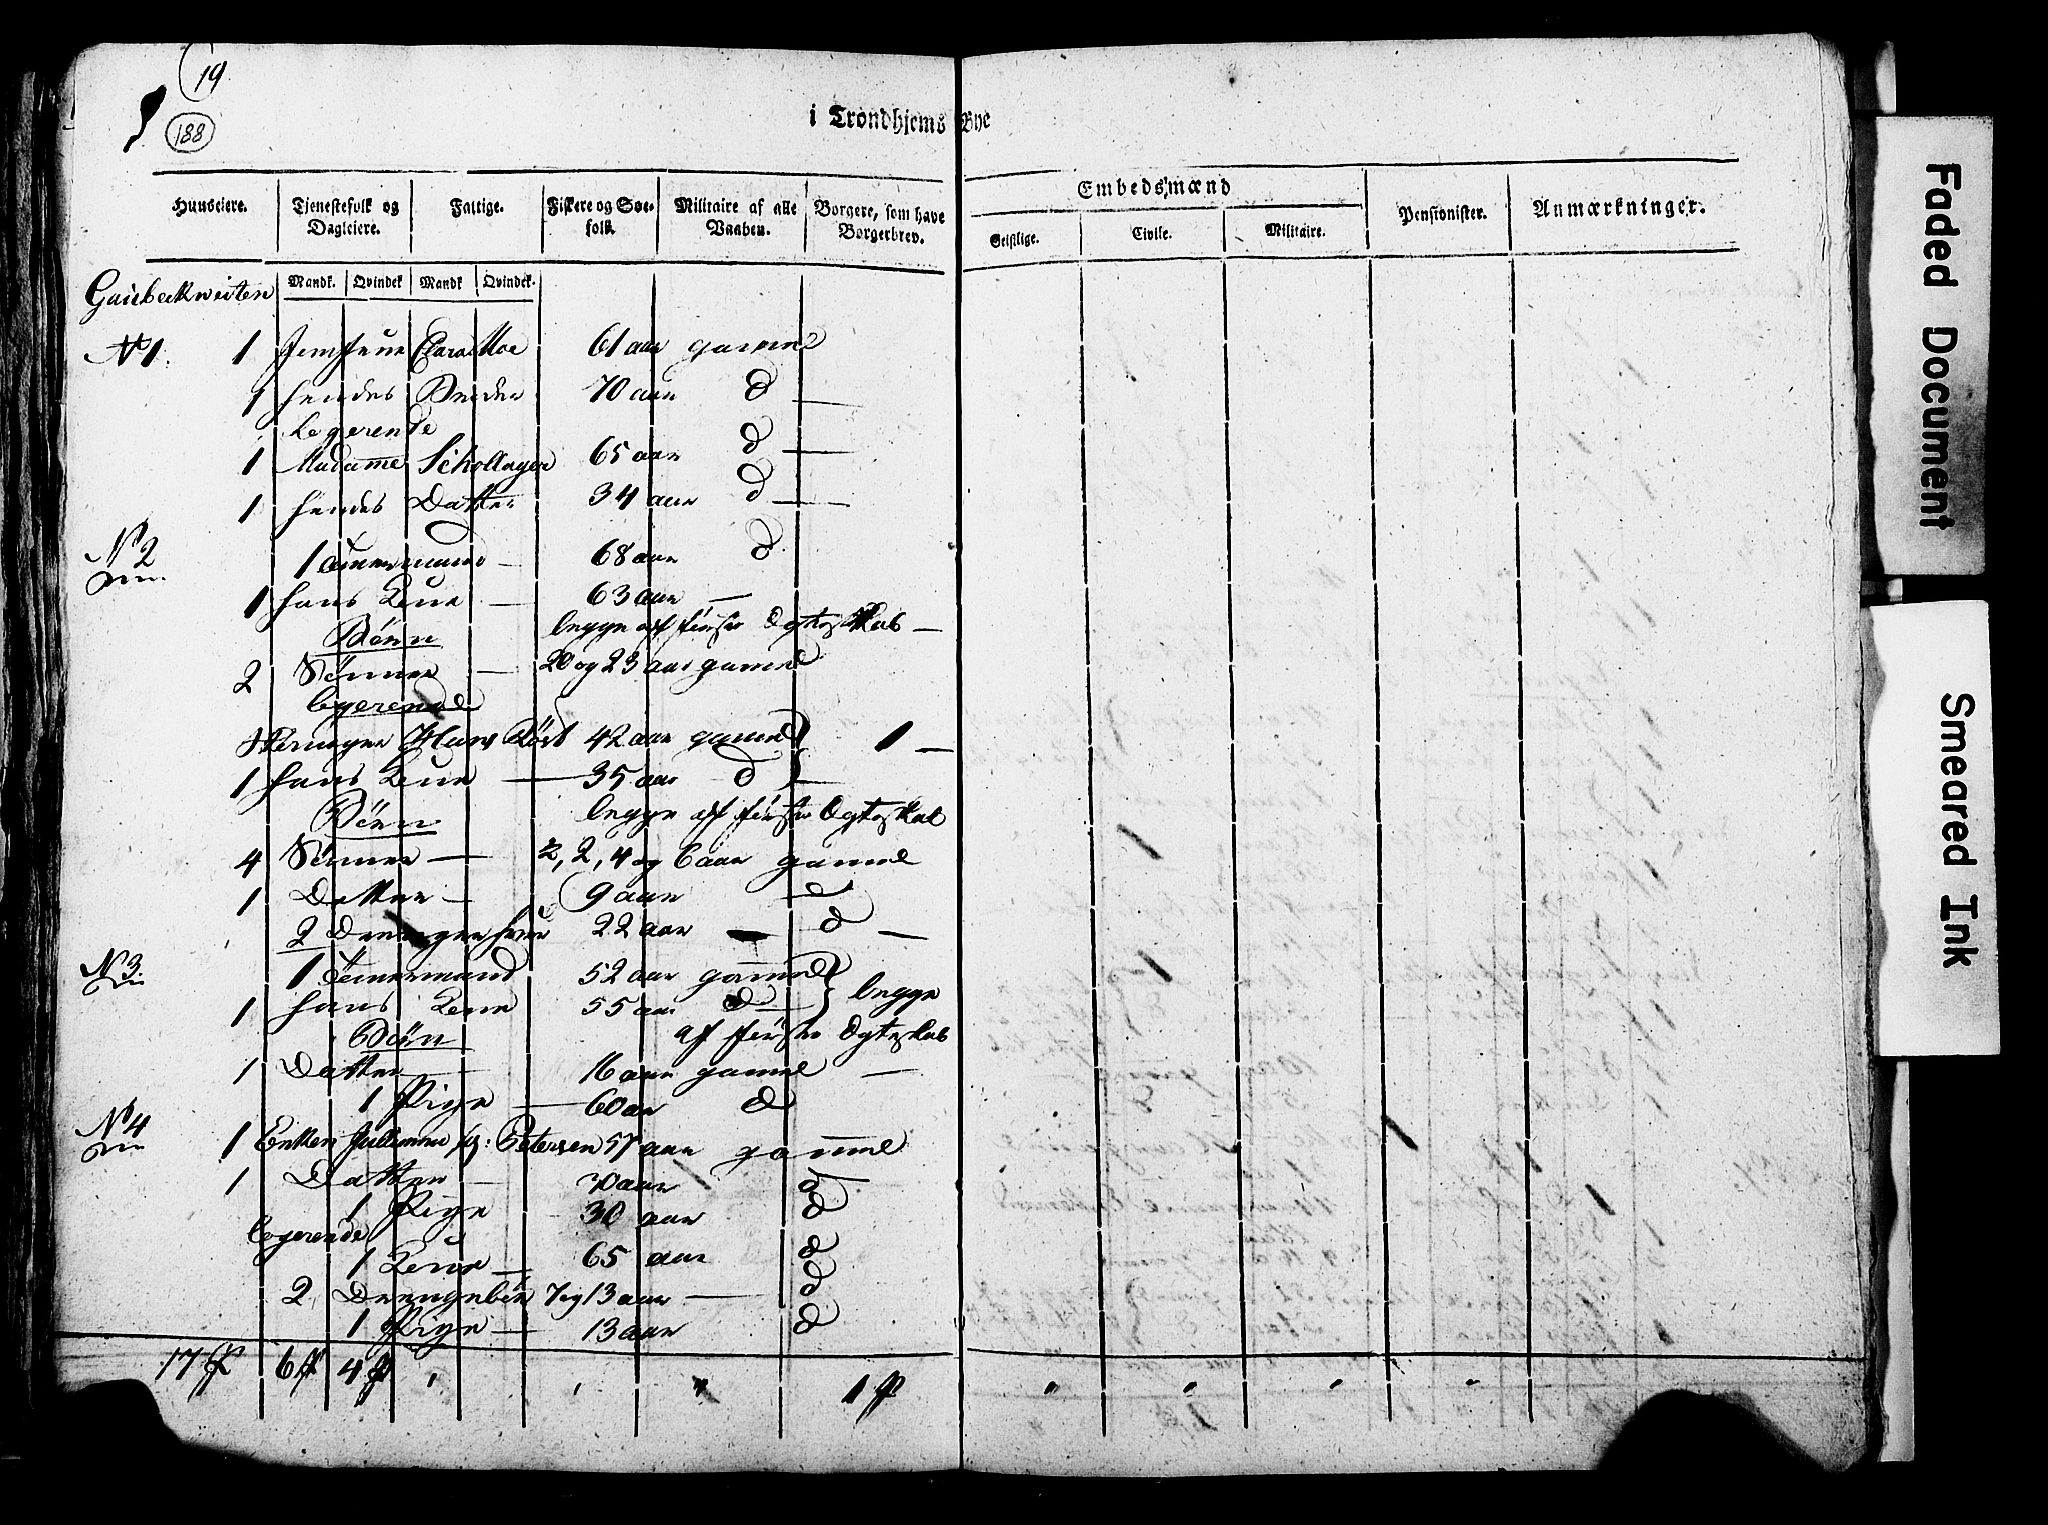 19
188
i Trondhjems Bye
Huuseiere. Tjenestefolk og Dagleiere. Fattige. Fiskere og Søefolk. Militaire af alle Vaaben. Borgere, som have Borgerbrev. Embedsmænd Pensionister. Anmærkninger.
Geistlige. Civile. Militaire.
Mandk. Qvindek Mandk Qvindek.
N1. 1 Clara Moe 61 aar gamml
1 hendes 70 aar d
logerende
1 Madamme 65 aar d
1 hendes Datter 34 aar d
N2 1 Timermand 68 aar d
1 hans Kone 63 aar
Børn begge af første Ægteskab
2 Sønner 20 og 23 aar gamml
logerende
Hans 42 aar gamml 1
1 hans Kone 35 aar d
Børn begge af første Ægteskab
4 Sønner ½, 2, 4 og 6 aar gamml
1 Datter 9 aar d
2 22 aar d
N3. 1 Timermand 52 aar gamml begge
1 hans Kone 55 aar d
Børn af første Ægteskab
1 Datter 16 aar gamml
1 Pige 60 aar d
N4 1 Enken Petersen 57 aar gamml
1 Datter aar d
1 Pige 30 aar d
logerende
1 Kone 65 aar d
2 7 og 13 aar d
1 Pige 13 aar d
17 6 4 1
Faded Document
Smeared Ink